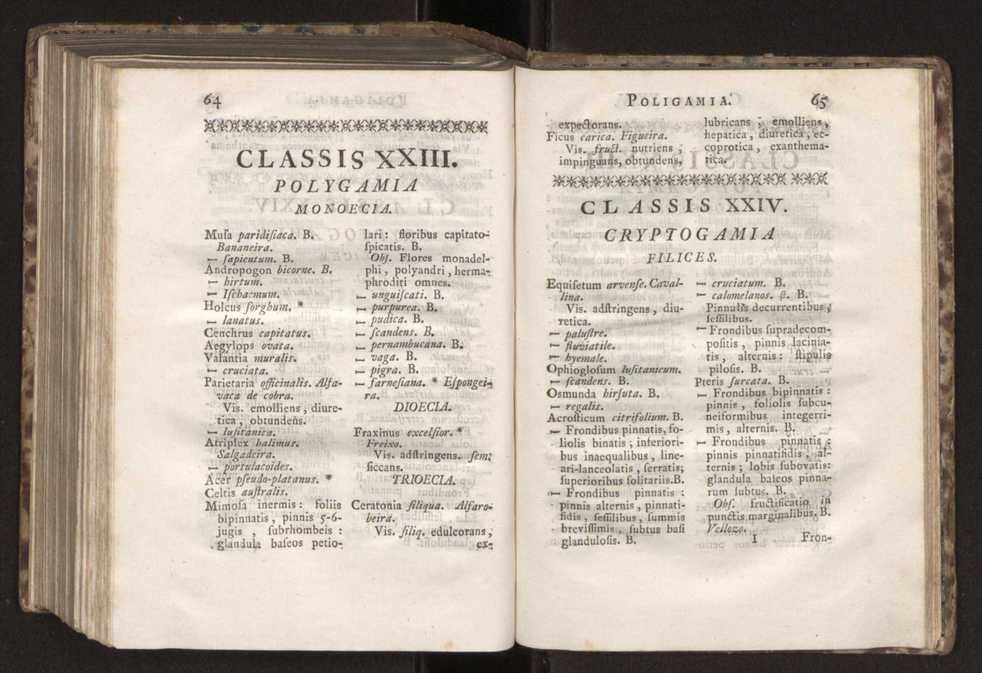 64
CLASSIS XXIII.
POLYGAMIA
MONOECIA.
Muſa paridiſiaca. B.
Bananeira.
— ſapientum. B.
Andropogon bicorne. B.
— hirtum.
— Iſchaemum.
Holcus ſorghum. *
— lanatus.
Cenchrus capitatus.
Aegylops ovata.
Valantia muralis.
— cruciata.
Parietaria officinalis. Alfa-
vaca de cobra.
Vis. emolliens, diure-
tica, obtundens.
— luſitanica.
Atriplex halimus.
Salgadeira.
— portulacoides.
Acer pſeudo-platanus. *
Celtis auſtralis.
Mimoſa inermis: foliis
bipinnatis, pinnis 5-6-
jugis, ſubrhombeis:
glandula baſeos petio-
lari: floribus capitato-
ſpicatis. B.
Obſ. Flores monadel-
phi, polyandri, herma-
phroditi omnes.
— unguiſcati. B.
— purpurea. B.
— pudica. B.
— ſcandens. B.
— pernambucana. B.
— vaga. B.
— pigra. B.
— farneſiana. * Eſpongei-
ra.
DIOECIA.
Fraxinus excelſior. *
Freixo.
Vis. adſtringens. ſem;
ſiccans.
TRIOECIA.
Ceratonia ſiliqua. Alfaro-
beira.
Vis. ſiliq. edulcorans,
ex-
POLIGAMIA. 65
expectorans.
Ficus carica. Figueira.
Vis. fruct. nutriens;
impinguans, obtundens,
lubricans; emolliens,
hepatica, diuretica, ec-
coprotica, exanthema-
tica.
CLASSIS XXIV.
CRYPTOGAMIA
FILICES.
Equiſetum arvenſe. Caval-
lina.
Vis. adſtringens, diu-
retica.
— paluſtre.
— fluviatile.
— hyemale.
Ophiogloſum luſitanicum.
— ſcandens. B.
Osmunda hirſuta. B.
— regalis.
Acroſticum citrifolium. B.
— Frondibus pinnatis, fo-
liolis binatis; inferiori-
bus inaequalibus, line-
ari-lanceolatis, ſerratis;
ſuperioribus ſolitariis. B.
— Frondibus pinnatis:
pinnis alternis, pinnati-
fidis, ſeſſilibus, ſummis
breviſſimis, ſubtus baſi
glanduloſis. B.
— cruciatum. B.
— calomelanos. β. B.
Pinnulis decurrentibus,
ſeſſilibus.
— Frondibus ſupradecom-
poſitis, pinnis lacinia-
tis, alternis: ſtipulis
piloſis. B.
Pteris furcata. B.
— Frondibus bipinnatis:
pinnis, foliolis ſubcu-
neiformibus integerri-
mis, alternis. B.
— Frondibus pinnatis:
pinnis pinnatifidis, al-
ternis; lobis ſubovatis:
glandula baſeos pinna-
rum ſubtus. B.
Obſ. fructificatio in
punctis marginalibus. B.
Vellozo.
I Fron-